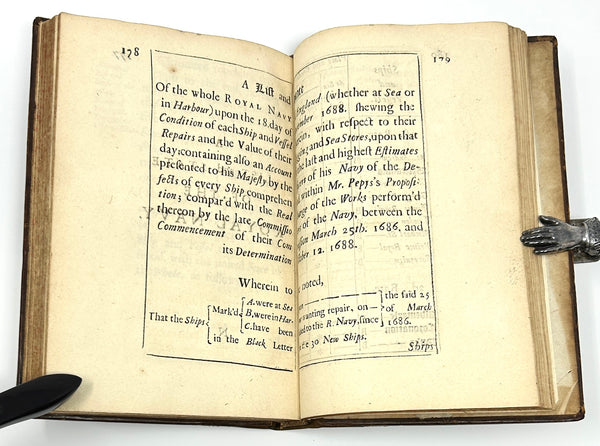 A List and
Of the whole ROYAL NAVY ngland (whether at Sea or
in Harbour) upon the 18.day of mber 1688. shewing the
Condition of each Ship and Vessel with respect to their
Repairs and the Value of their and Sea Stores, upon that
day: containing also an Account the last and highest Estimates
presented to his Majesty by the of his Navy of the De-
fects of every Ship, comprehen within Mr. Pepys's Proposi-
tion; compar'd with the Real arge of the Works perform'd
thereon by the late Commissio of the Navy, between the
Commencement of their Com on March 25th. 1686. and
its Determination ber 12. 1688.
Wherein to noted,
That the Ships Mark'd A. were at Sea
B. were in Har- wanting repair, on the said 25 of March 1686.
C. have been ed to the R. Navy, since
in the Black Letter 30 New Ships.
Ships